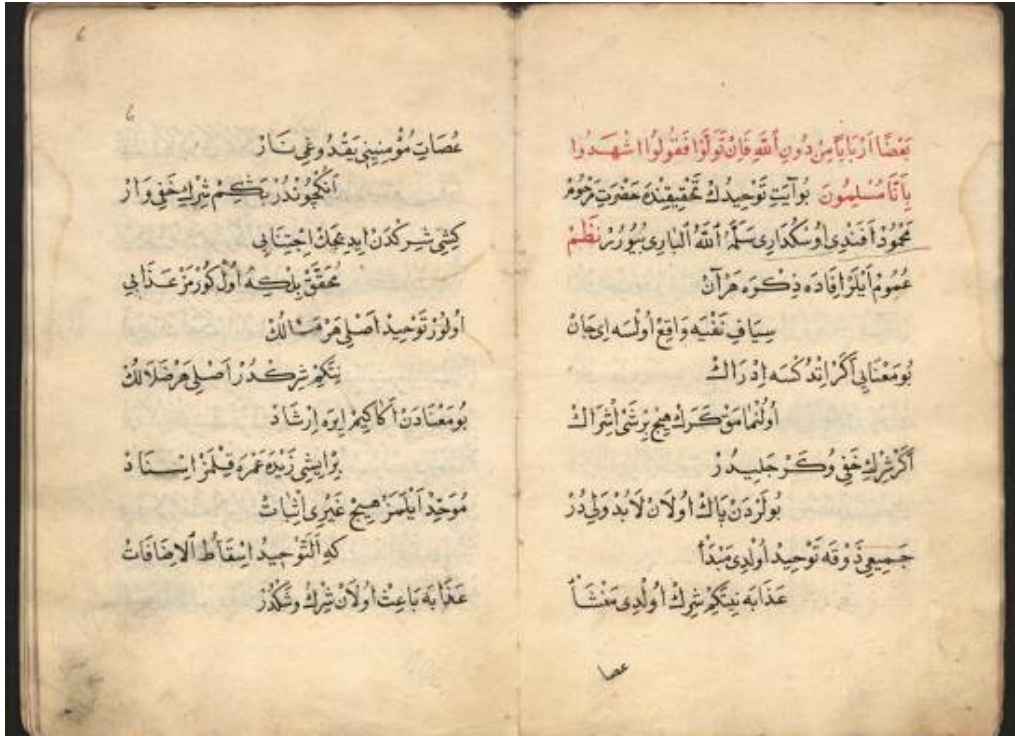 بَعْضًا اَرْبَابًا مِنْ دُونِ اللّٰهِ فَاِنْ تَوَلَّوْا فَقُولُوا اشْهَدُوا
بِاَنَّا مُسْلِمُونَ بُو آيَتِ تَوْحِيدُكْ تَحْقِيقِنْدَه حَضْرَتِ مَرْحُومْ
مَحْمُودْ اَفَنْدِى اُوسْكُدَارِى سَلَّمَهُ اللّٰهُ الْبَارِى بُيُورُرْ نَظْمْ
عُمُومْ اَيْلَرْ اِفَادَه ذِكْرَه هَرْ آنْ
سِيَاقِ نَفْيَه وَاقِعْ اُولْسَه اِى جَانْ
بُو مَعْنَايِى اَكَرْ اِتْدُكْسَه اِدْرَاكْ
اُولُنْمَامَقْ كَرَكْ هِيچْ بِرْ شَىْ اِشْرَاكْ
اَكَرْ شِرْكِ خَفِى وُ كَرْ جَلِيدُرْ
بُولَرْدَنْ پَاكْ اُولَانْ لَابُدْ وَلِيدُرْ
جَمِيعِ ذَوْقَه تَوْحِيدْ اُولْدِى مَبْدَأْ
عَذَابَه نِيتَكِمْ شِرْكْ اُولْدِى مَنْشَأْ
عصا
6
6
عُصَاتِ مُؤْمِنِينِى يَقْدُوغِى نَارْ
اَنِكْچُونْدُرْ بَاشْكِمْ شِرْكِ خَفِى وَارْ
كِشِى شِرْكَدَنْ اِيدِيجَكْ اِجْتِنَابِى
مُحَقَّقْ بِلْ كِه اُولْ كُورْمَزْ عَذَابِى
اُولُورْ تَوْحِيدْ اَصْلِى هَرْ مَسَالِكْ
نِتَكِمْ شِرْكْدُرْ اَصْلِى هَرْ ضَلَالِكْ
بُو مَعْنَادَنْ اَكَا كِيمْ اِيرَه اِرْشَادْ
بِرْ اِيشِى زَيْدَه عَمْرَه قِيلْمَزْ اِسْنَادْ
مُوَحِّدْ اَيْلَمَزْ هِيچْ غَيْرِى اِثْبَاتْ
كِه اَلتَّوْحِيدُ اِسْقَاطُ الْاِضَافَاتْ
عَذَابَه بَاعِثْ اُولَانْ شِرْكُ وشَكْدُرْ